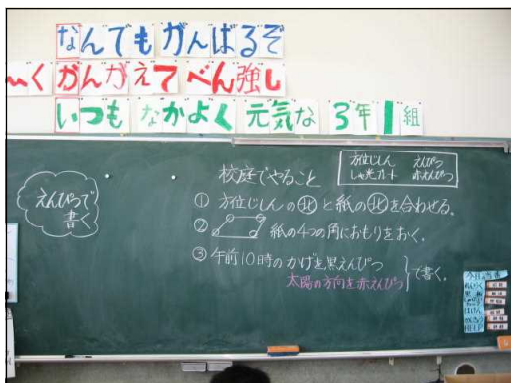 なんでもがんばるぞ
くかんがえてべん強し
いつもなかよく元気な3年1組
えんぴつで
書く
校庭でやること
方位じしん えんぴつ
しゃ光プレート 赤えんぴつ
① 方位じしんの北と紙の北を合わせる。
② 紙の4つの角におもりをおく。
③ 午前10時のかげを黒えんぴつ
太陽の方向を赤えんぴつ
で書く。
HELP